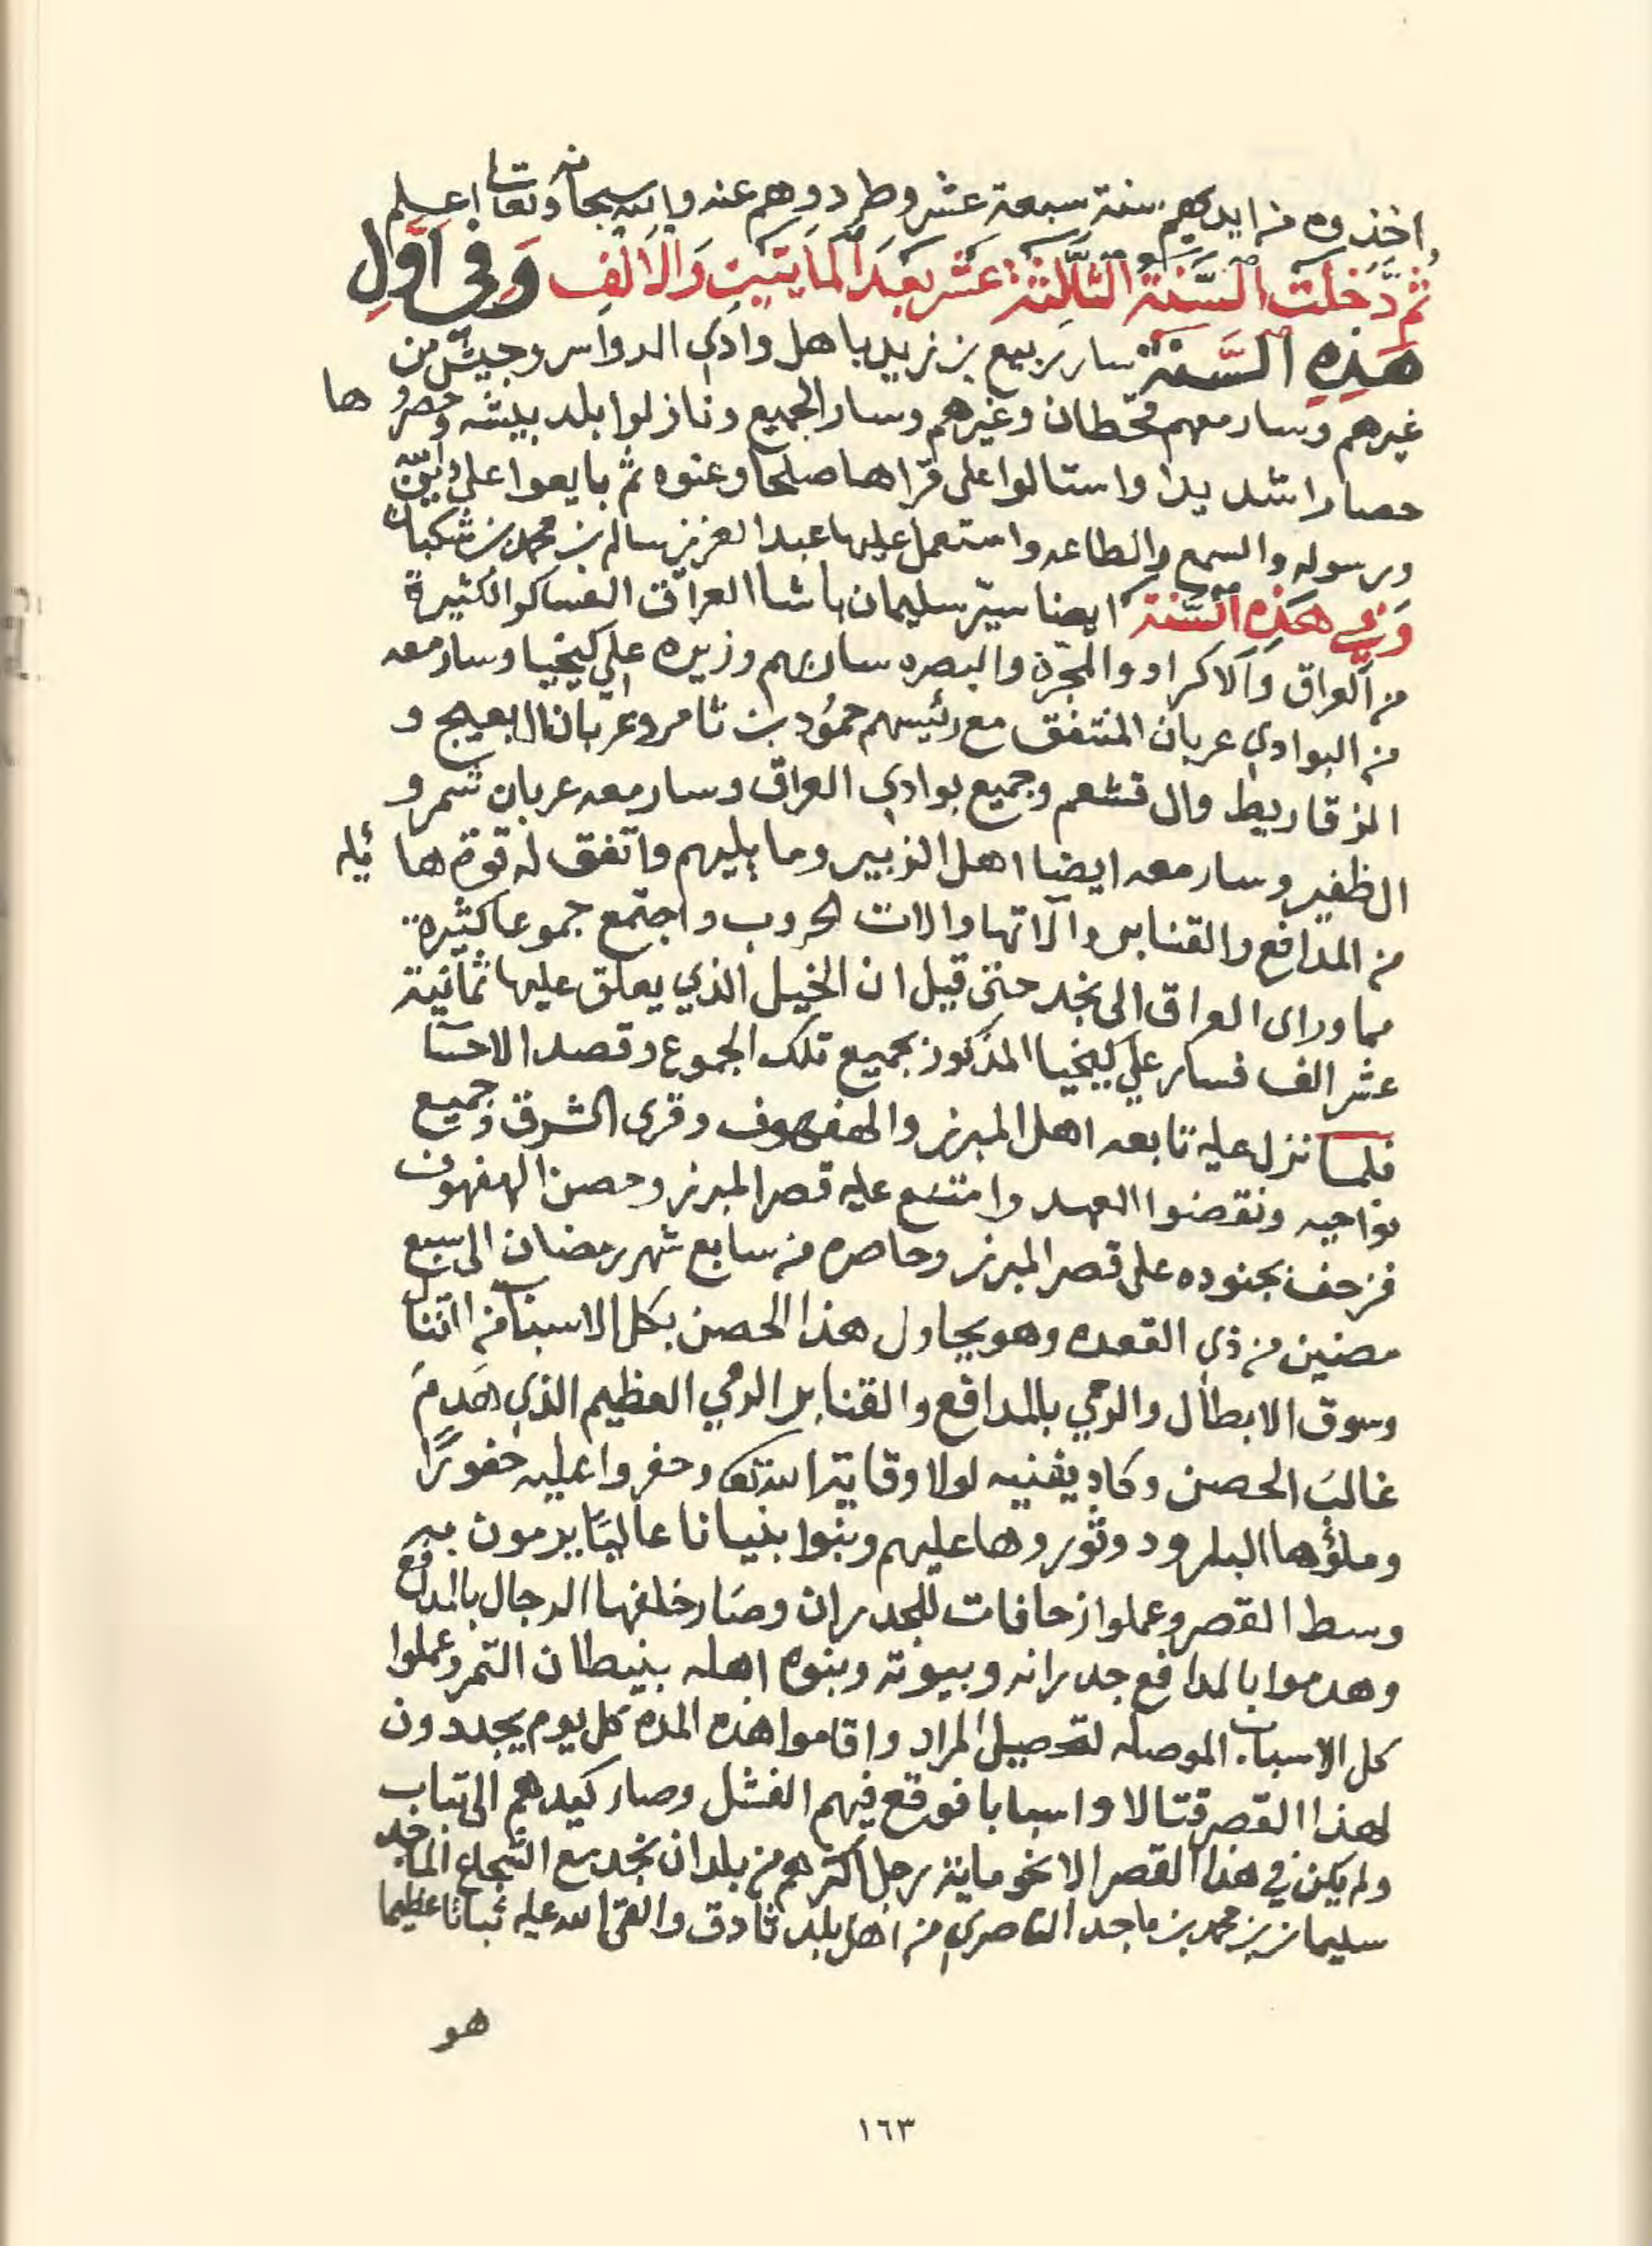 اخذوه من ايديهم سنة سبعة عشر وطردوهم عنه والله سبحانه وتعالى اعلم
ثُمَّ دَخَلَتِ السَّنَة الثَّالِثة عَشَر بَعْدَ المايَتَيْنِ وَالْأَلْفِ وَفي أَوَّلِ
هَذِهِ السَّنَة سار ربيع بن زيد باهل وادي الدواسر وجيش من
غيرهم وسار معهم قحطان وغيرهم وسار الجميع ونازلوا بلد بيشه وحصروها
حصارا شديدا واستالوا على قراها صلحا وعنوه ثم بايعوا على دين الله
ورسوله والسمع والطاعه واستعمل عليها عبدالعزيز سالم بن محمد بن شكبان
وَفي هَذِهِ السَّنَة ايضا سيّر سليمان باشا العراق العساكر الكثيرة
من العراق والاكراد والمجرّة والبصره سار بهم وزيره علي كيخيا وسار معه
من البوادي عربان المنتفق مع رئيسهم حمُود بن ثامر وعربان ال بعيج و
الزقاريط وال قشعم وجميع بوادي العراق وسار معه عربان شمر و
الظفير وسار معه ايضا اهل الزبير وما يليهم واتفق له قوة هايله
من المدافع والقنابر وآلاتها والات الحروب واجتمع جموعا كثيرة
مما وراى العراق الى نجد حتى قيل ان الخيل الذي يعلق عليها ثمانية
عشر الف فسار علي كيخيا المذكور بجميع تلك الجموع وقصد الاحسا
فلما نزل عليه تابعه اهل المبرز والهفهوف وقرى الشرق وجميع
نواحيه ونقضوا العهد وامتنع عليه قصر المبرز وحصن الهفهوف
فزحف بجنوده على قصر المبرز وحاصره من سابع شهر رمضان الى سبع
مضين من ذي القعده وهو يحاول هذا الحصن بكل الاسباب من القتال
وسوق الابطال والرمي بالمدافع والقنابر الرمي العظيم الذي هَدمَ
غالبَ الحصن وكاد يفنيه لولا وقاية الله تعالى وحفروا عليه حفورًا
وملؤها البارود وثوروها عليهم وبنوا بنيانا عاليًا يرمون به
وسط القصر وعملوا زحافات للجدران وصَار خلفها الرجال بالمدافع
وهدموا بالمدافع جدرانه وبيوته وبنوه اهله بنيطان التمر وعملوا
كل الاسباب الموصله لتحصيل المراد واقاموا هذه المده كل يوم يجددون
لهذا القصر قتالا واسبابا فوقع فيهم الفشل وصار كيدهم الى تباب
ولم يكن في هذا القصر الا نحو ماية رجل اكثرهم من بلدان نجد مع الشجاع الماجد
سليمان بن محمد بن ماجد الناصري من اهل بلد ثادق والقى الله عليه ثباتا عظيما
هو
١٦٣